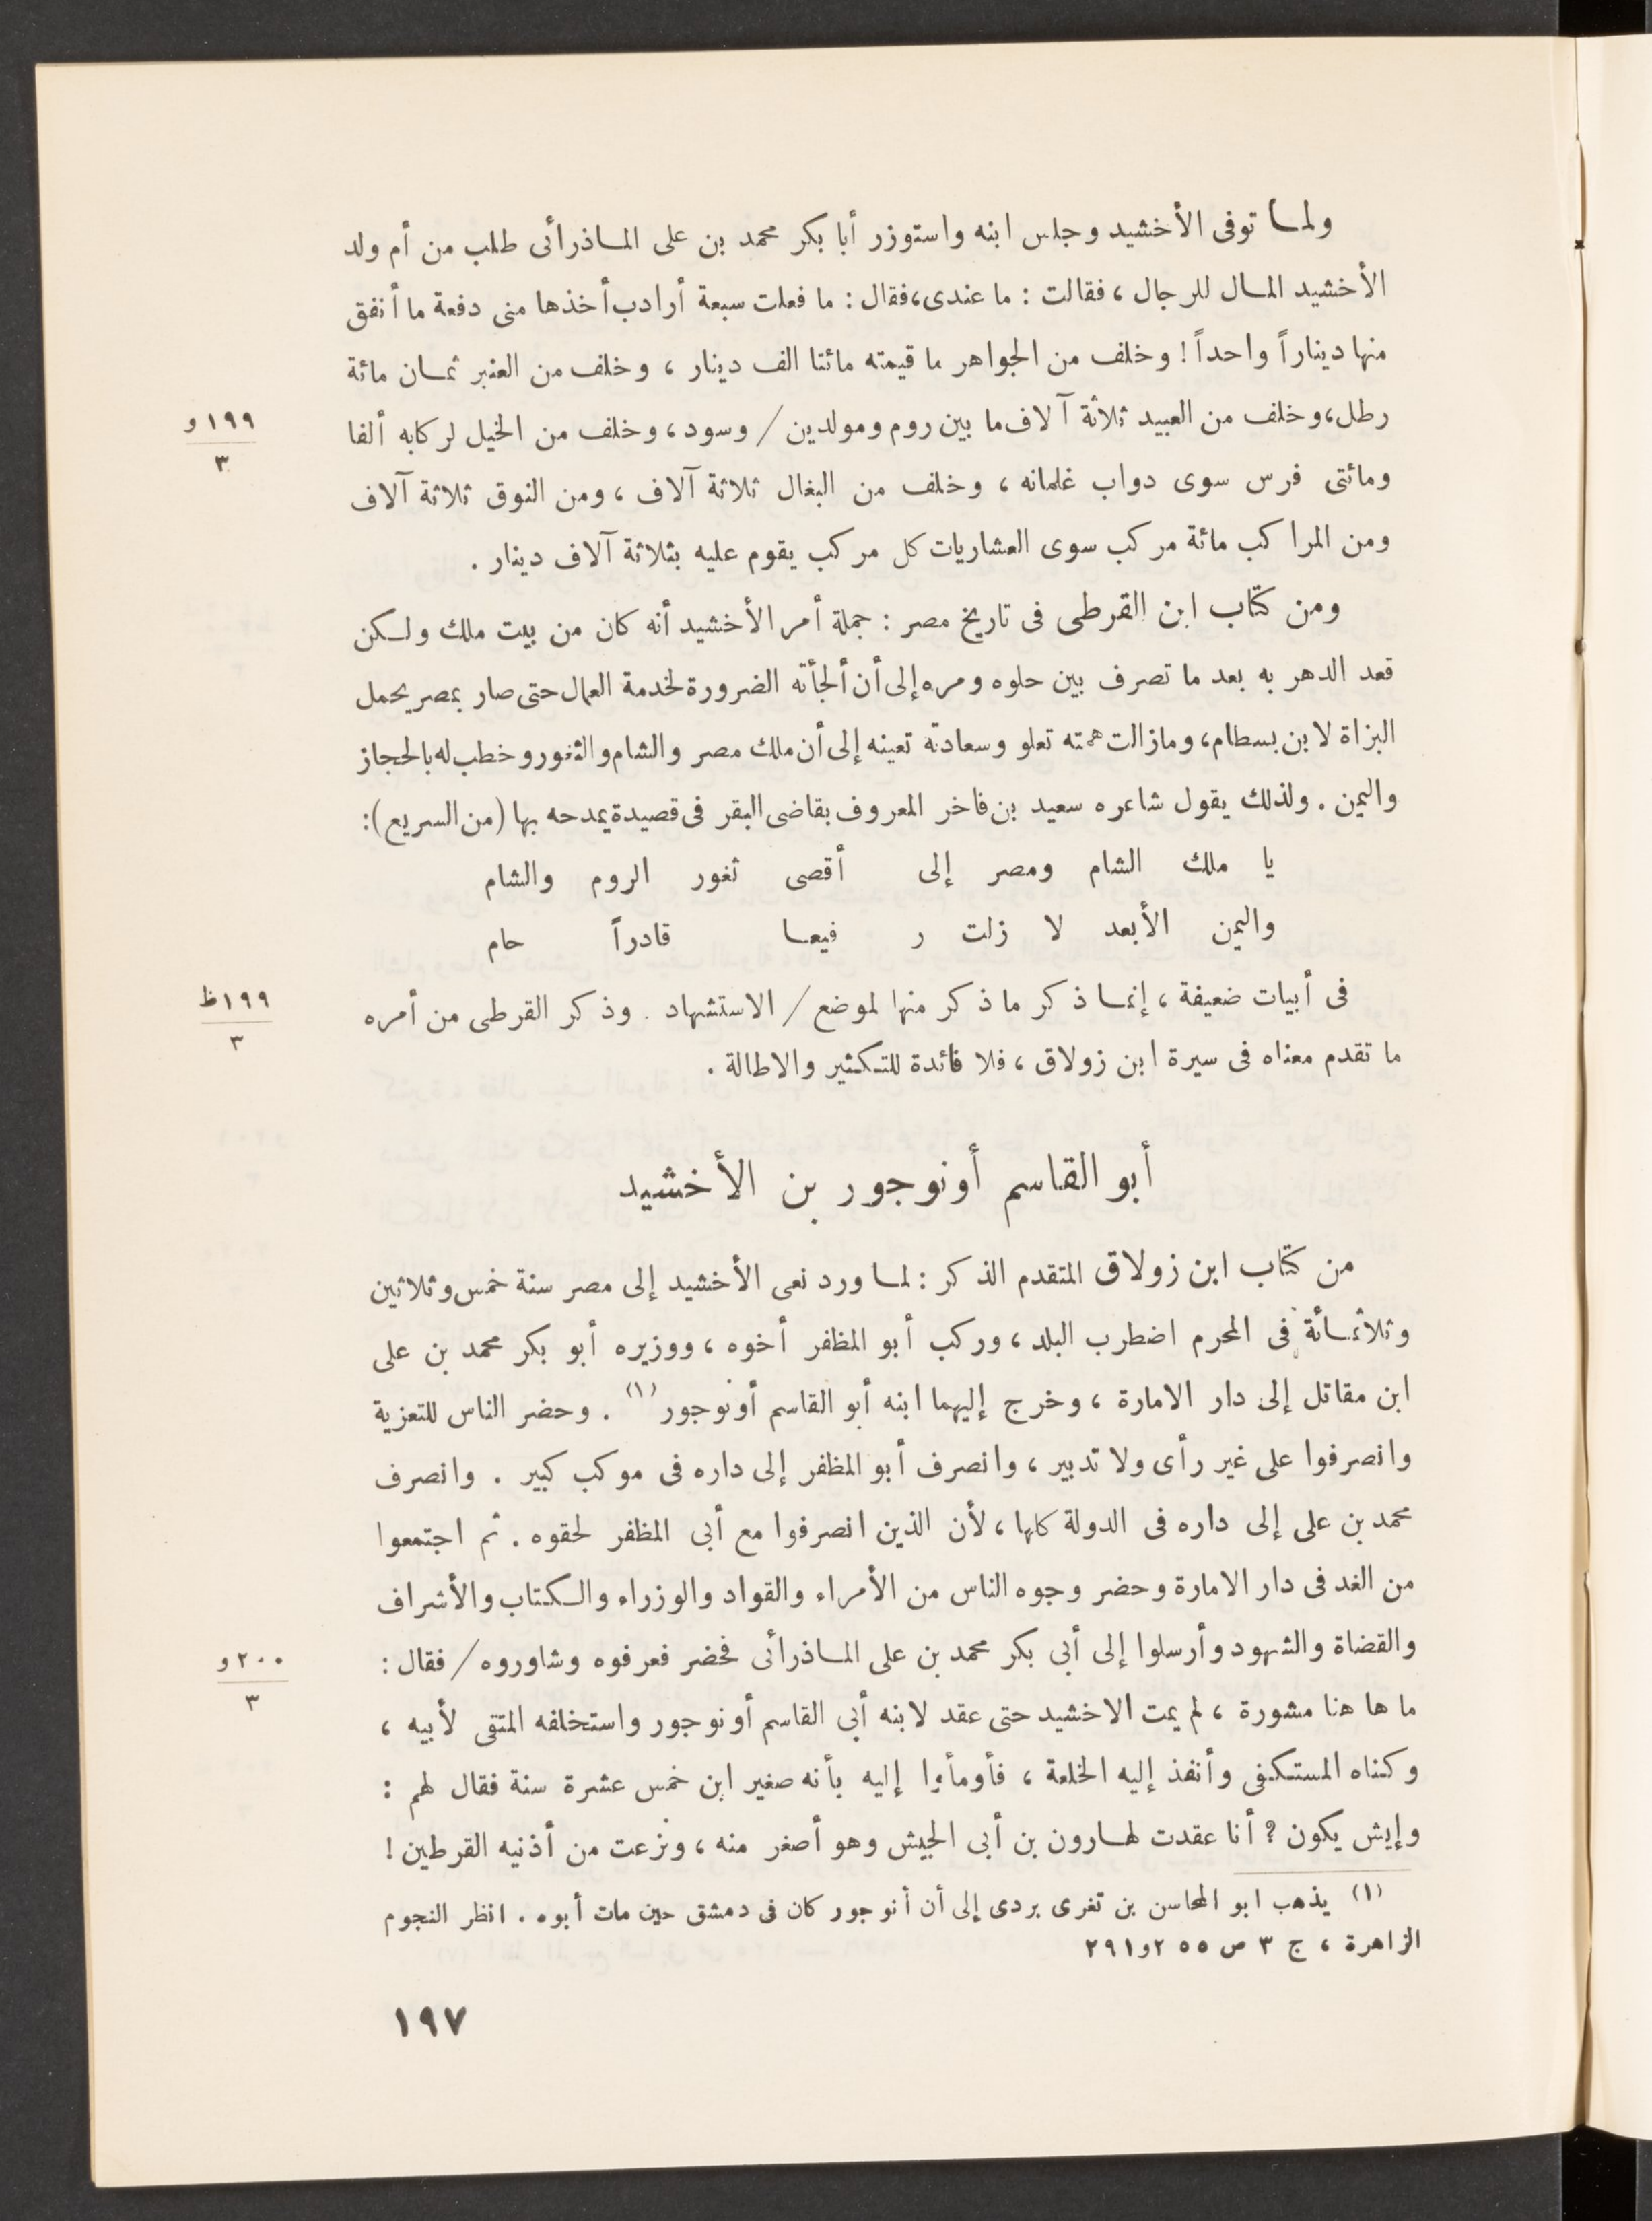 ولما توفى الأخشيد وجلس ابنه واستوزر أبا بكر محمد بن على الماذرائى طلب من أم ولد
الأخشيد المال للرجال ، فقالت : ما عندى ، فقال : ما فعلت سبعة أرادب أخذها منى دفعة ما أنفق
منها ديناراً واحداً ! وخلف من الجواهر ما قيمته مائتا الف دينار ، وخلف من العنبر ثمان مائة
رطل ، وخلف من العبيد ثلاثة آلاف ما بين روم ومولدين / وسود ، وخلف من الخيل لركابه ألفا
١٩٩ و
٣
ومائتى فرس سوى دواب غلمانه ، وخلف من البغال ثلاثة آلاف ، ومن النوق ثلاثة آلاف
ومن المراكب مائة مركب سوى العشاريات كل مركب يقوم عليه بثلاثة آلاف دينار .
ومن كتاب ابن القرطى فى تاريخ مصر : جملة أمر الأخشيد أنه كان من بيت ملك ولكن
قعد الدهر به بعد ما تصرف بين حلوه ومره إلى أن ألجأته الضرورة لخدمة العمال حتى صار بمصر يحمل
البزاة لابن بسطام ، ومازالت همته تعلو وسعادته تعينه إلى أن ملك مصر والشام والثغور وخطب له بالحجاز
واليمن . ولذلك يقول شاعره سعيد بن فاخر المعروف بقاضى البقر فى قصيدة يمدحه بها (من السريع) :
يا ملك الشام ومصر إلى أقصى ثغور الروم والشام
واليمن الأبعد لا زلت ر فيعا قادراً حام
فى أبيات ضعيفة ، إنما ذكر ما ذكر منها لموضع / الاستشهاد . وذكر القرطى من أمره
١٩٩ ظ
٣
ما تقدم معناه فى سيرة ابن زولاق ، فلا فائدة للتكثير والاطالة .
أبو القاسم أونوجور بن الأخشيد
من كتاب ابن زولاق المتقدم الذكر : لما ورد نعى الأخشيد إلى مصر سنة خمس وثلاثين
وثلاثمائة فى المحرم اضطرب البلد ، وركب أبو المظفر أخوه ، ووزيره أبو بكر محمد بن على
ابن مقاتل إلى دار الامارة ، وخرج إليهما ابنه أبو القاسم أونوجور (١) . وحضر الناس للتعزية
وانصرفوا على غير رأى ولا تدبير ، وانصرف أبو المظفر إلى داره فى موكب كبير . وانصرف
محمد بن على إلى داره فى الدولة كلها ، لأن الذين انصرفوا مع أبى المظفر لحقوه . ثم اجتمعوا
من الغد فى دار الامارة وحضر وجوه الناس من الأمراء والقواد والوزراء والكتاب والأشراف
والقضاة والشهود وأرسلوا إلى أبى بكر محمد بن على الماذرائى فحضر فعرفوه وشاوروه / فقال :
٢٠٠ و
٣
ما ها هنا مشورة ، لم يمت الاخشيد حتى عقد لابنه أبى القاسم أونوجور واستخلفه المتقى لأبيه ،
وكناه المستكفى وأنفذ إليه الخلعة ، فأومأوا إليه بأنه صغير ابن خمس عشرة سنة فقال لهم :
وإيش يكون ؟ أنا عقدت لهارون بن أبى الجيش وهو أصغر منه ، ونزعت من أذنيه القرطين !
(١) يذهب ابو المحاسن بن تغرى بردى إلى أن أنوجور كان فى دمشق حين مات أبوه . انظر النجوم
الزاهرة ، ج ٣ ص ٢٥٥ و٢٩١
١٩٧